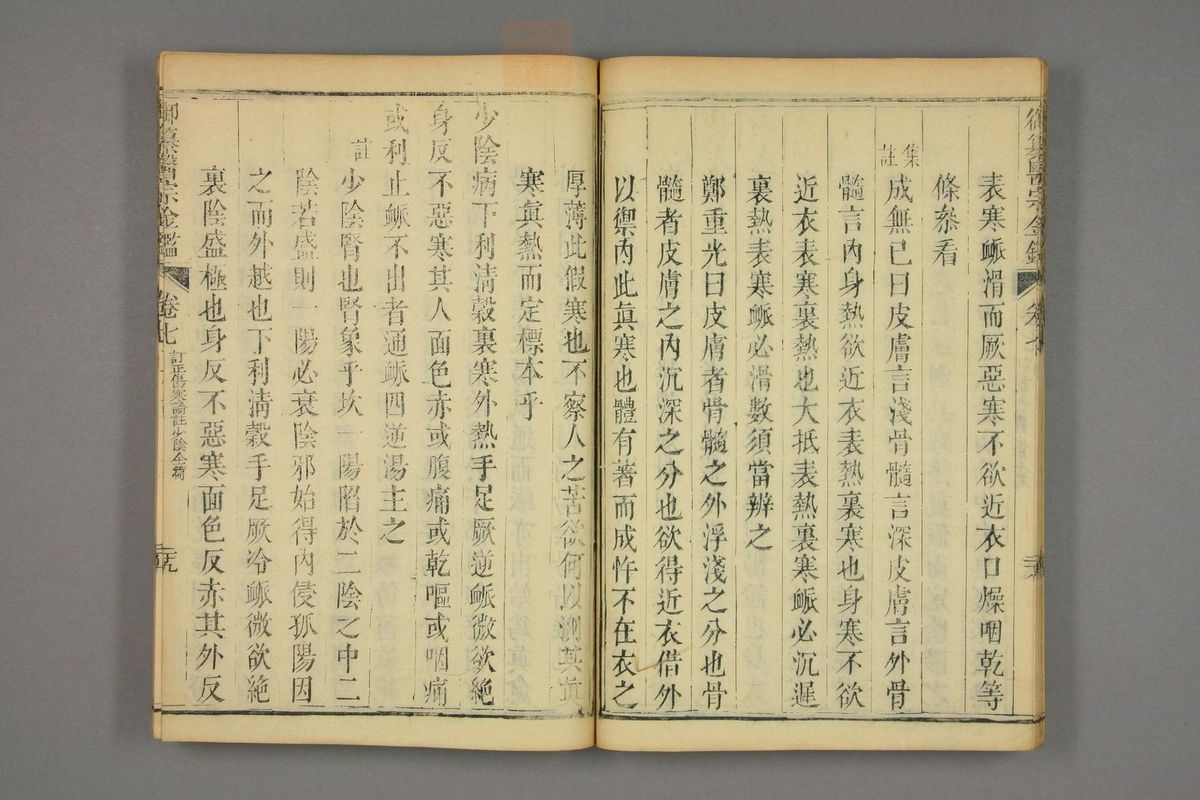 表寒脈滑而厥惡寒不欲近衣口燥咽乾等
條叅看
集註
成無已曰皮膚言淺骨髓言深皮膚言外骨
髓言內身熱欲近衣表熱裏寒也身寒不欲
近衣表寒裏熱也大抵表熱裏寒脈必沉遲
裏熱表寒脈必滑數須當辨之
鄭重光曰皮膚者骨髓之外浮淺之分也骨
髓者皮膚之內沉深之分也欲得近衣借外
以禦內此眞寒也體有著而成忤不在衣之
厚薄此假寒也不察人之苦欲何以測其眞
寒眞熱而定標本乎
少陰病下利清穀裏寒外熱手足厥逆脈微欲絕
身反不惡寒其人面色赤或腹痛或乾嘔或咽痛
或利止脈不出者通脈四逆湯主之
註
少陰腎也腎象乎坎一陽陷於二陰之中二
陰若盛則一陽必衰陰邪始得內侵孤陽因
之而外越也下利清穀手足厥冷脈微欲絕
裏陰盛極也身反不惡寒面色反赤其外反
御纂醫宗金鑑
卷七
訂正傷寒論註少陰全篇